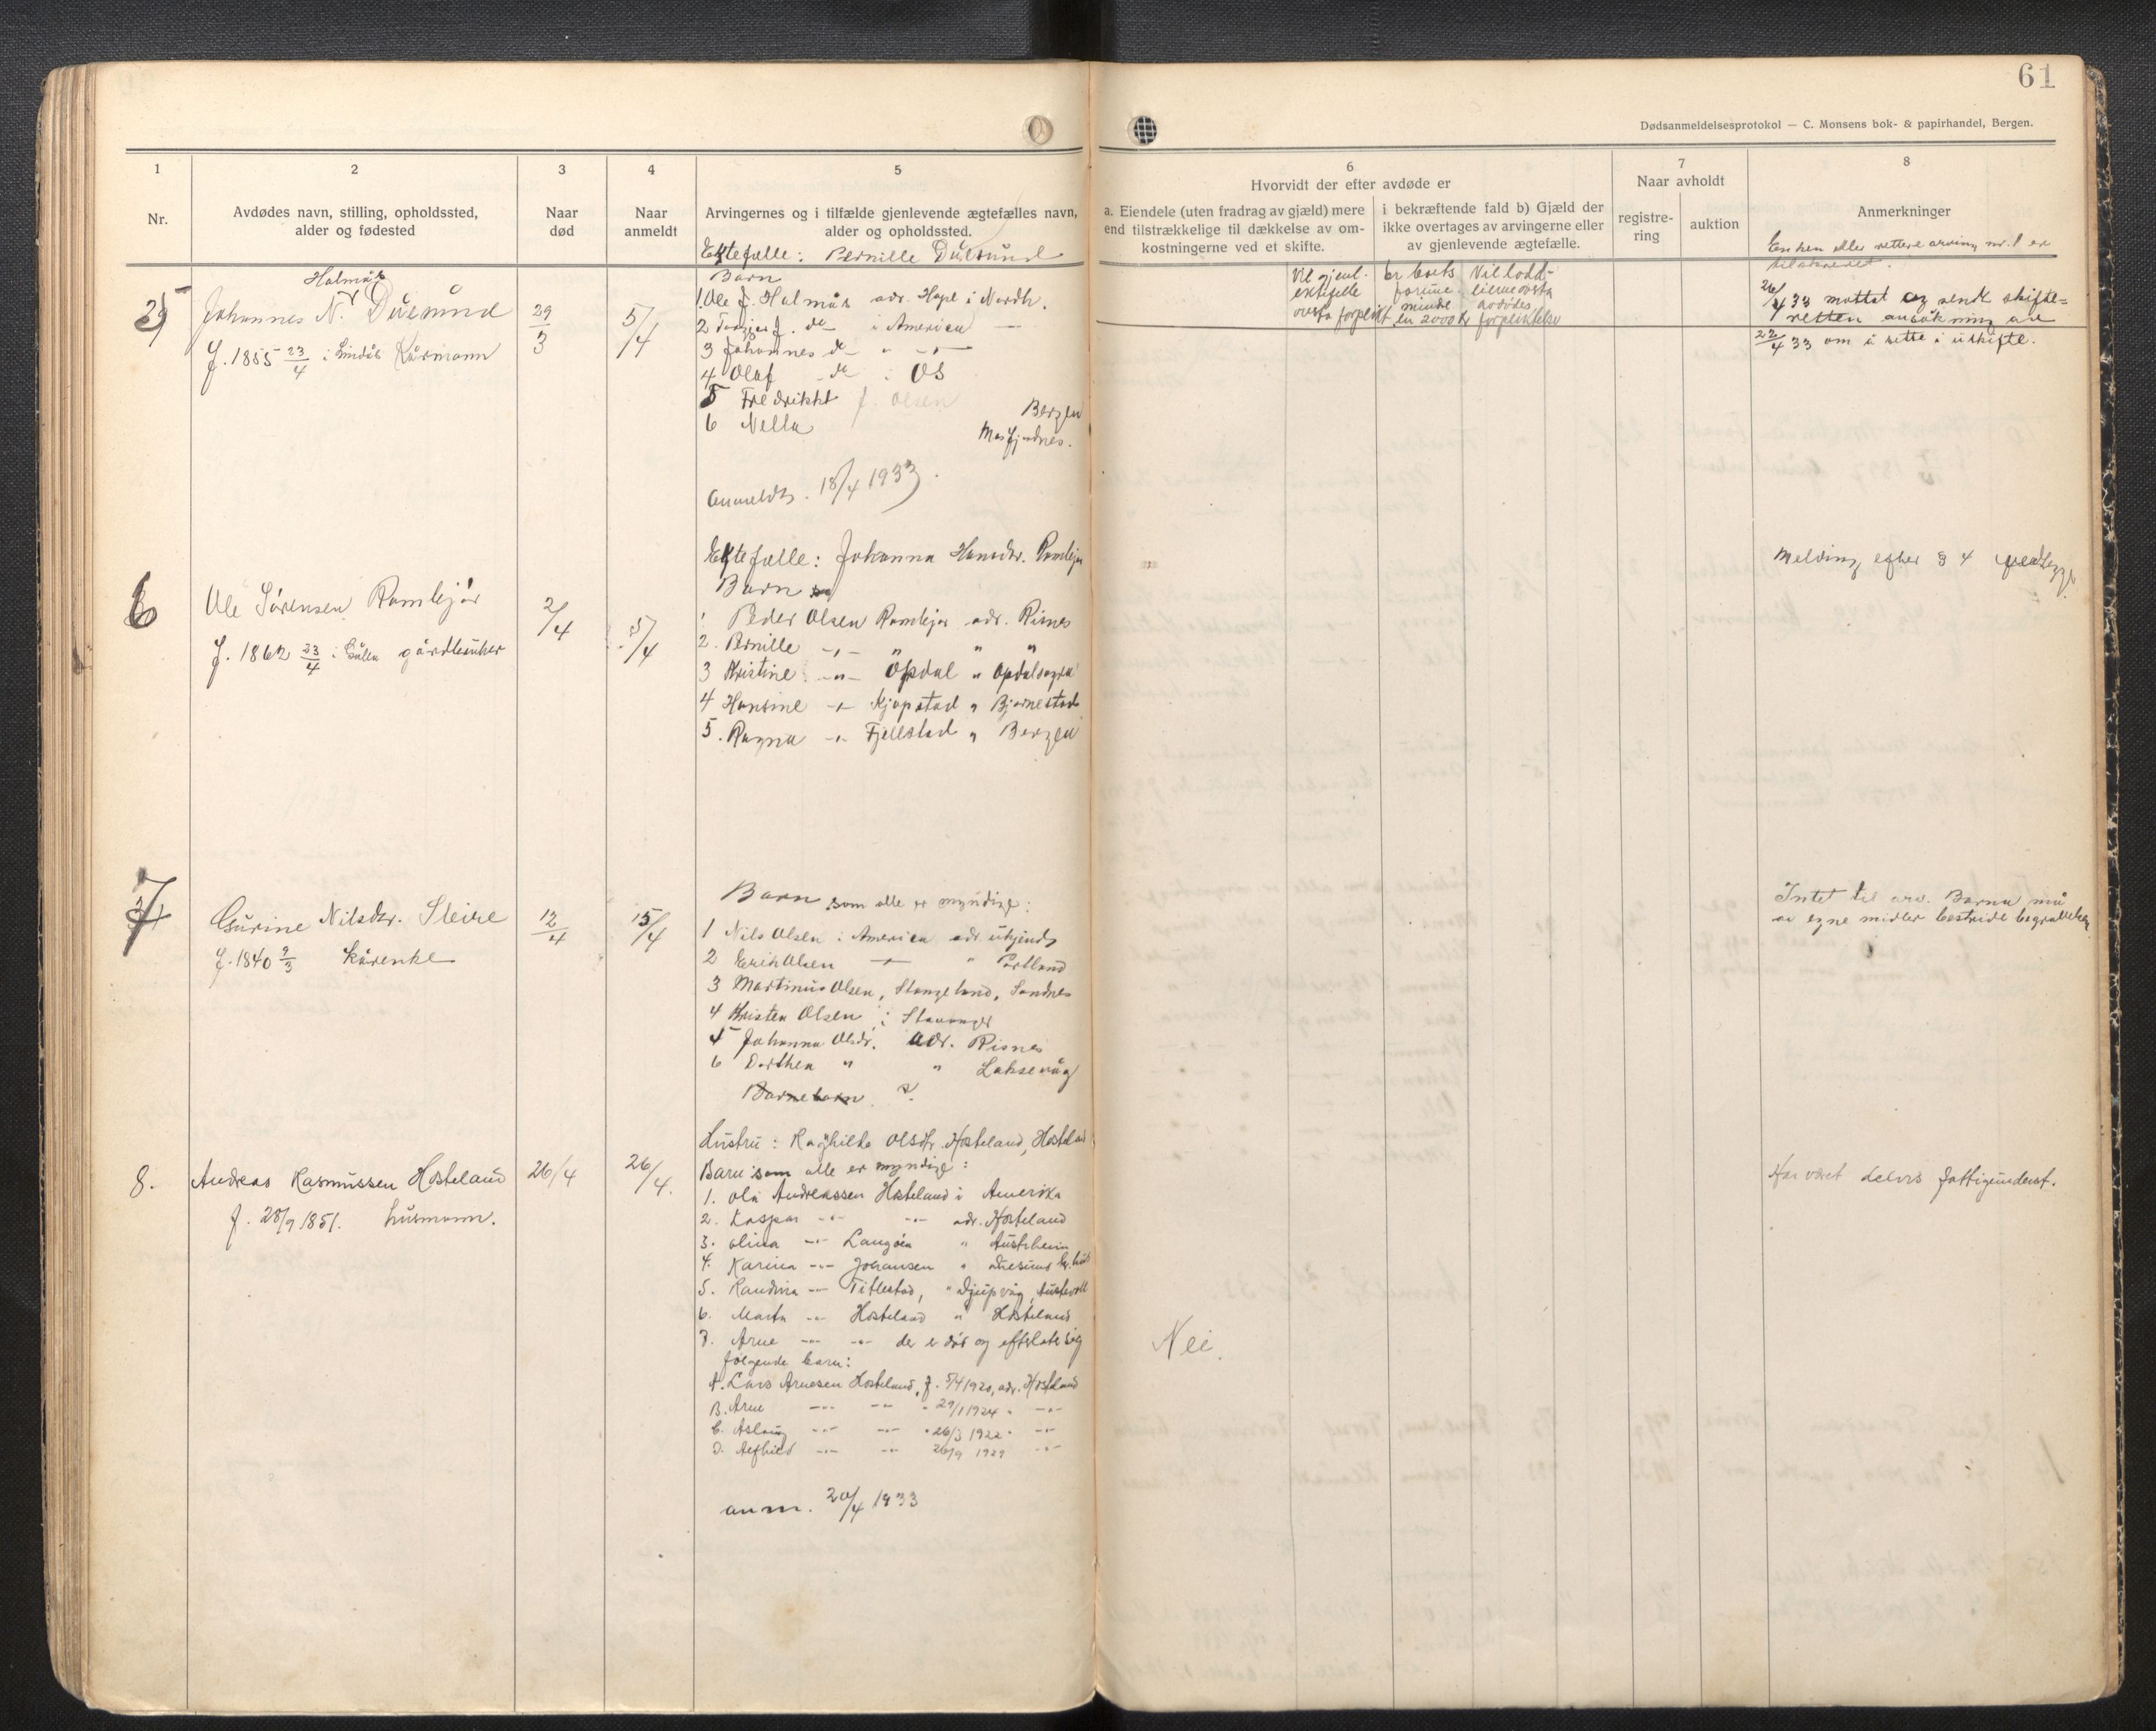 61
Dødsanmeldelsesprotokol — C. Monsens bok- & papirhandel, Bergen.
1
Nr.
2
Avdødes navn, stilling, opholdssted,
alder og fødested
3
Naar
død
4
Naar
anmeldt
5
Arvingernes og i tilfælde gjenlevende ægtefælles navn,
alder og opholdssted.
6
Hvorvidt der efter avdøde er
a. Eiendele (uten fradrag av gjæld) mere
end tilstrækkelige til dækkelse av om-
kostningerne ved et skifte.
i bekræftende fald b) Gjæld der
ikke overtages av arvingerne eller
av gjenlevende ægtefælle.
7
Naar avholdt
registre-
ring
auktion
8
Anmerkninger
5
Halmås
Johannes N. Duesund
f. 1855 23/4 i Lindås Kårmann
29/3
5/4
Ektefælle: Pernille Duesund
Barn
1 Ole J. Halmås adr. Hope i Nordh.
2 J. do i America
3 Johannes do " -"-
4 Olaf do i Os
5 Fredrikke J. Olsen Bergen
6 Nella Masfjordnes.
Anmeldt. 18/4 1933.
Vil gjenl.
ektefelle
overta forplikt
Er boets
formue
minde
en 2000 kr
Vil lodd-
eierne overta
avdødes
forpliktelse
Enken eller rettere arving nr. 1 er
tilskrevet.
26/4 33 mottat og sendt skifte=
retten ansøkning av
22/4 33 om å sitte i uskifte.
6
Ole Sørensen Ramlejår
f. 1862 23/4 i Gulen gårdbruker
2/4
5/4
Ektefælle: Johanna Hansdr.
Barn
1 Peder Olsen Romlejor adr. Risnes
2. Pernille -"- " "
3 Kristine -"- Opdal " Opdalsøyra
4 Hansine -"- Kjøpstad " Bjørnestad
5. Ragna -"- Fjellstad " Bergen
Melding efter § 4
7
Gurine Nilsdr. Steire
f. 1840 9/3 Kårenke
12/4
15/4
Barn som alle er myndige:
1 Nils Olsen i America adr. ukjendt
2 Erik Olsen -"- " Portland
3 Martinus Olsen, Stangeland, Sandnes
4 Kristen Olsen i Stavanger
5 Johanna Olsdr. adr. Risnes
6 Dorthea " " Laksevåg
Barnebarn
Intet til arv. Barna må
av egne midler bestride begravelsen
8.
Andreas Rasmussen Hosteland
f. 28/9 1851. husmann.
26/4
26/4.
Hustru: Raghilda Olsdtr. Hosteland, Hosteland
Barn som alle er myndige:
1. Ola Andreassen Hosteland i Amerika
2. Kaspar -"- -"- adr. Hosteland
3. Olina -"- Langøen " Austrheim
4. Karina -"- Johansen "
5. Randina -"- Titlestad, " Djupvåg, Austevoll
6. Marta -"- Hosteland " Hosteland
7. Arne -"- -"- der er død og efterlatt sig
følgende barn:
A. Lars Arnesen Hosteland, f. 5/4 1920, adr. Hosteland
B. Arne -"- -"- " 29/1 1924 " -"-
C. Aslaug -"- -"- " 26/3 1922 " -"-
D. Alfhild -"- -"- 26/9 1929 -"-
anm. 20/4 1933
Nei.
Har været delvis fattigunderst.